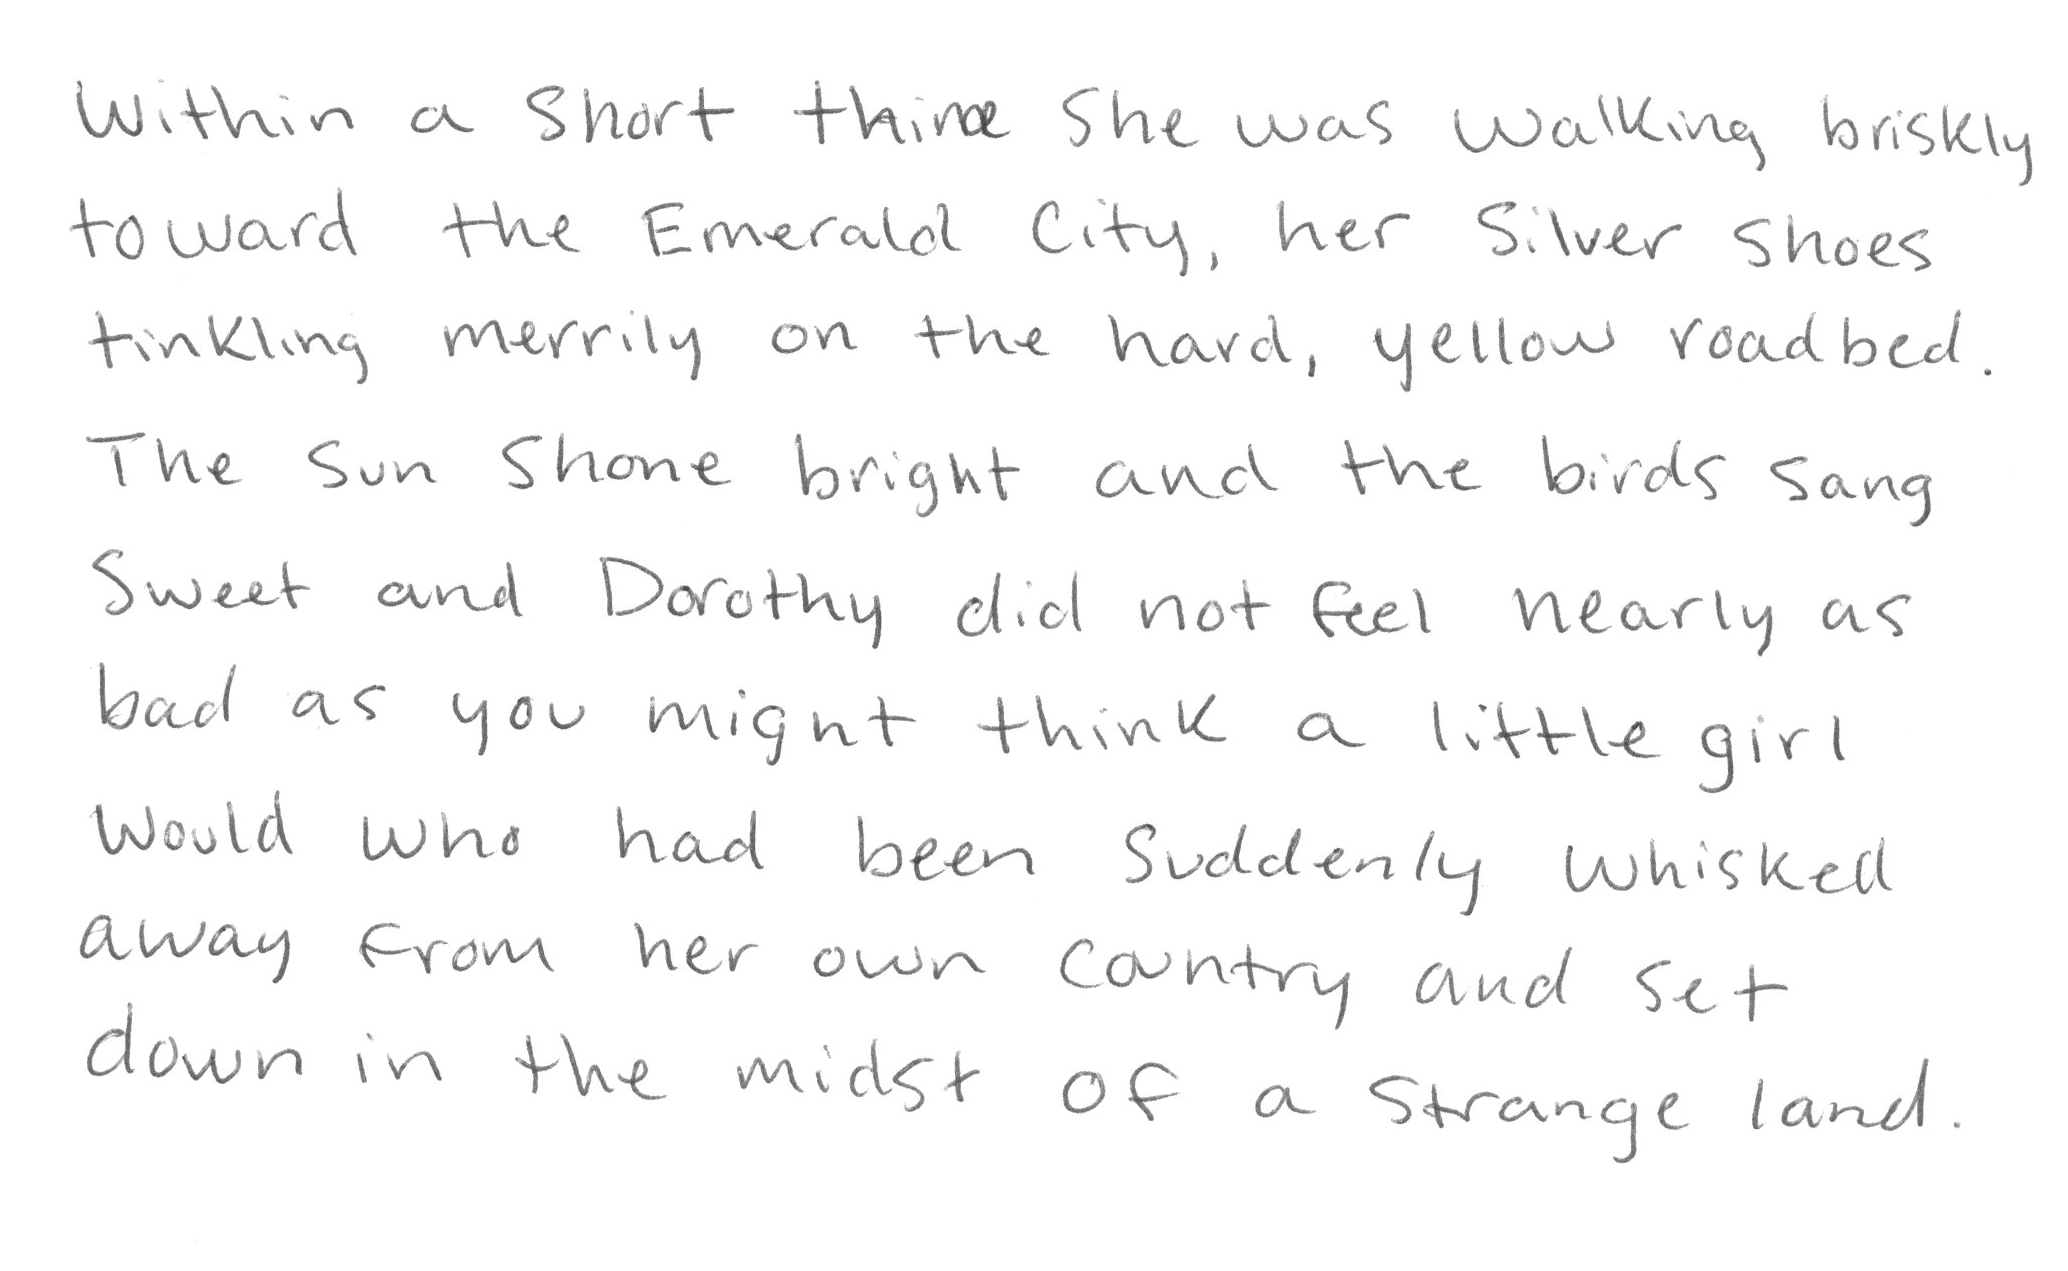 Within a short thime she was walking briskly
toward the Emerald City, her Silver Shoes
tinkling merrily on the hard, yellow roadbed.
The sun shone bright and the birds sang
sweet and Dorothy did not feel nearly as
bad as you might think a little girl
would who had been suddenly whisked
away from her own country and set
down in the midst of a strange land.